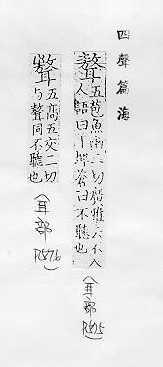 四聲篇海
聱五苞魚幽二切廣雅云不入
人語埤蒼曰不聽也
(耳部 R575)
五高五交二切
与聱同不聽也
(耳部 R576)